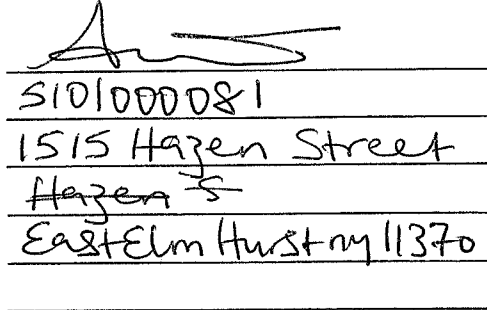 5101000081
1515 Hazen Street
Hazen S
East Elm Hurst ny 11370